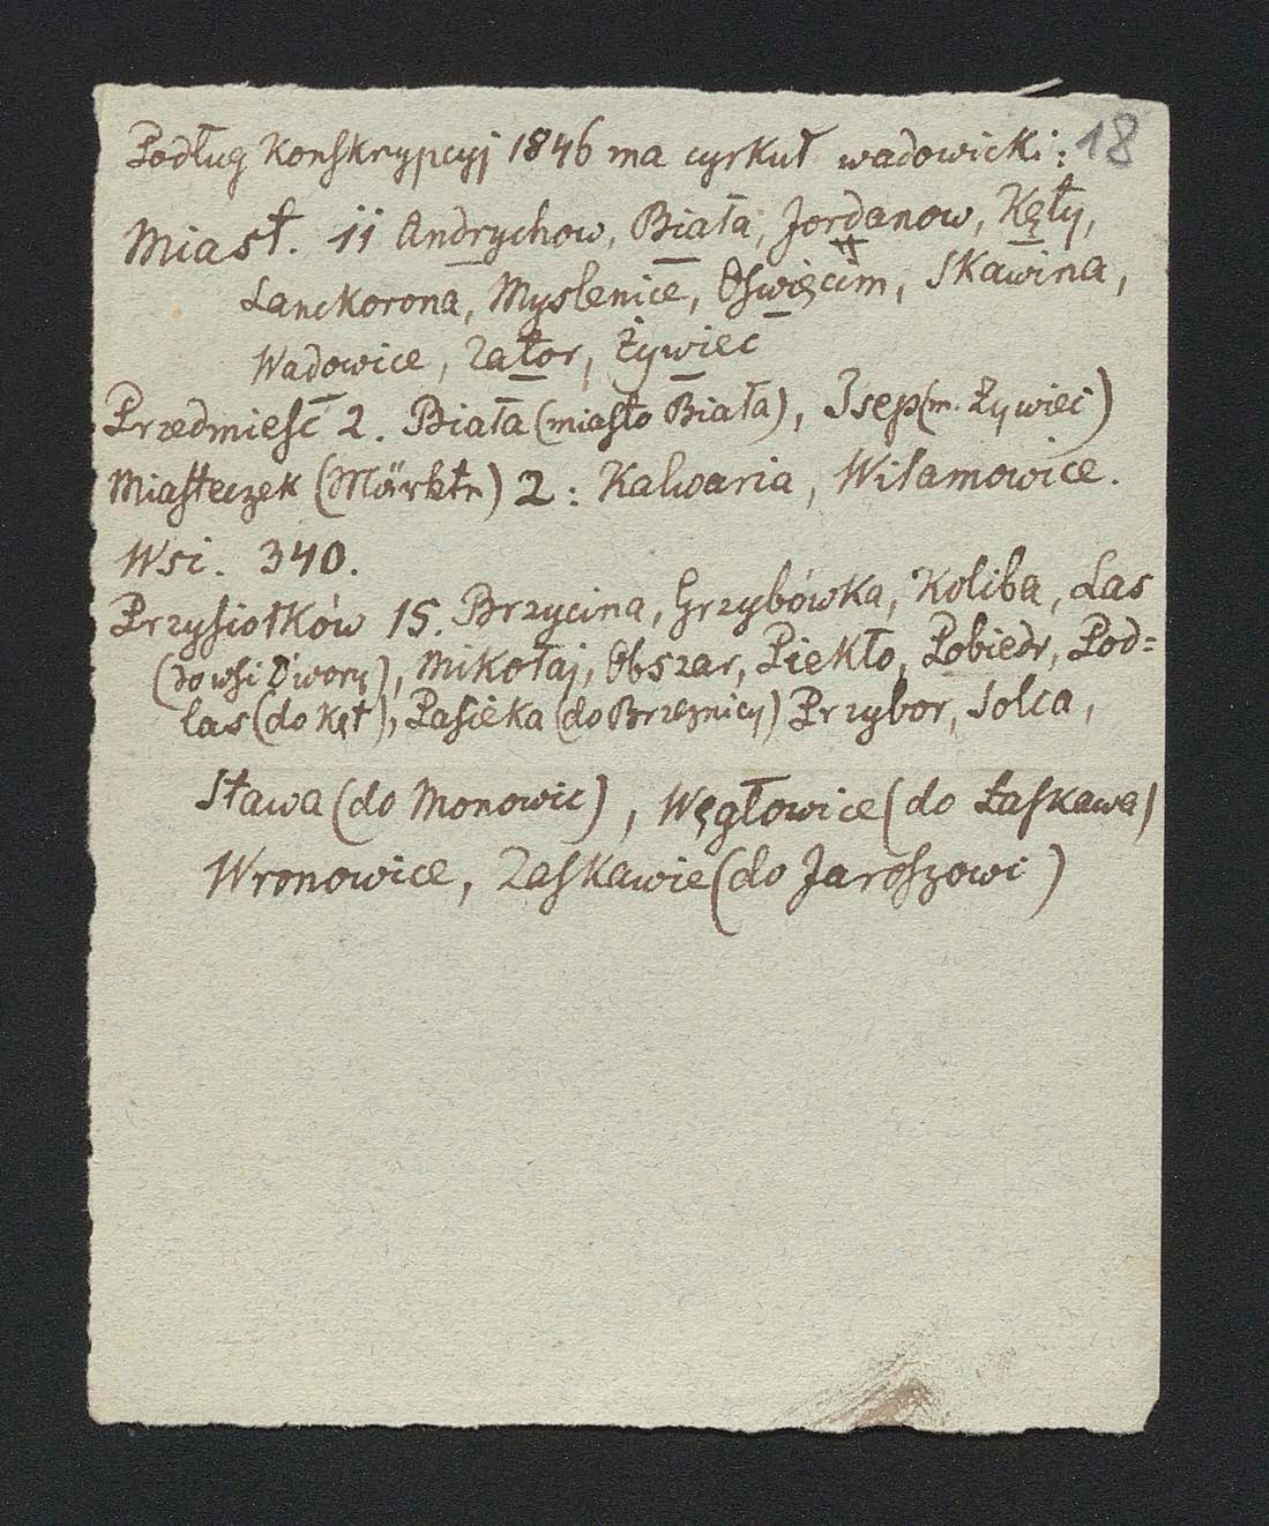 Podług Konskrypcyj 1846 ma cyrkuł wadowicki: 18
Miast. 11 Andrychow, Biała, Jordanow, Kęty,
Lanckorona, Myslenice, Oswięcim, Skawina,
Wadowice, Zator, Żywiec
Przedmieść 2. Biała (miasto Biała), Isep (m. Żywiec)
Miasteczek (Märkte) 2: Kalwaria, Wilamowice.
Wsi. 340.
Przysiołków 15. Brzycina, Grzybówka, Koliba, Las
(do wsi Dwory), Mikołaj, Obszar, Piekło, Pobiedr, Pod=
las (do Kęt), Pasieka (do Brzeznicy) Przybor, Solca,
Sława (do Monowic), Węgłowice (do Łaskawa)
Wronowice, Zaskawie (do Jaroszowi)